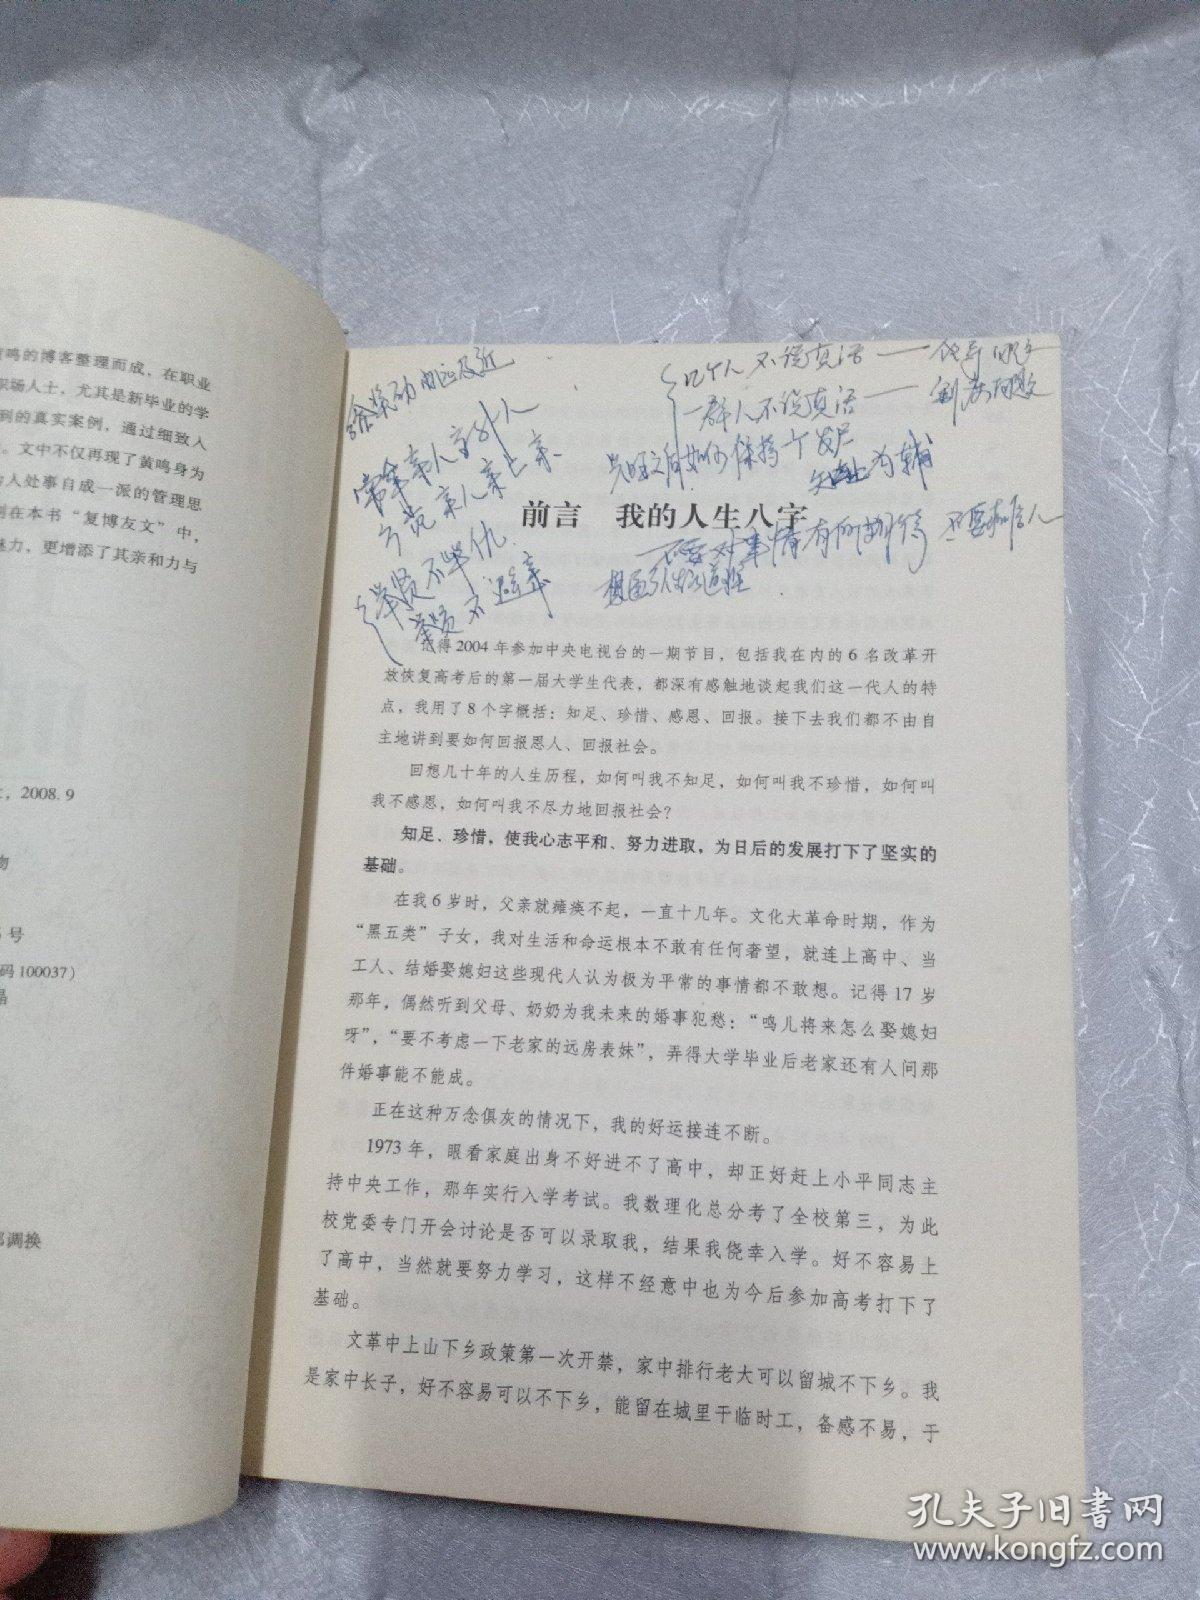 鸣的博客整理而成，在职业
职场人士，尤其是新毕业的学
到的真实案例，通过细致人
。文中不仅再现了黄鸣身为
人处事自成一派的管理思
别在本书“复博友文”中，
魅力，更增添了其亲和力与
，2008.9
物
号
码100037）
晶
部调换
几个人不说真话——领导
一群人不说真话——制度问题
常年亲人亲外人
亲人亲上亲
举贤不举仇
举贤不避亲
如何保持
为辅
前言 我的人生八字
不要对事情有所
记得2004年参加中央电视台的一期节目，包括我在内的6名改革开
放恢复高考后的第一届大学生代表，都深有感触地谈起我们这一代人的特
点，我用了8个字概括：知足、珍惜、感恩、回报。接下去我们都不由自
主地讲到要如何回报恩人、回报社会。
回想几十年的人生历程，如何叫我不知足，如何叫我不珍惜，如何叫
我不感恩，如何叫我不尽力地回报社会？
知足、珍惜，使我心志平和、努力进取，为日后的发展打下了坚实的
基础。
在我6岁时，父亲就瘫痪不起，一直十几年。文化大革命时期，作为
“黑五类”子女，我对生活和命运根本不敢有任何奢望，就连上高中、当
工人、结婚娶媳妇这些现代人认为极为平常的事情都不敢想。记得17岁
那年，偶然听到父母、奶奶为我未来的婚事犯愁：“鸣儿将来怎么娶媳妇
呀”，“要不考虑一下老家的远房表妹”，弄得大学毕业后老家还有人问那
件婚事能不能成。
正在这种万念俱灰的情况下，我的好运接连不断。
1973年，眼看家庭出身不好进不了高中，却正好赶上小平同志主
持中央工作，那年实行入学考试。我数理化总分考了全校第三，为此
校党委专门开会讨论是否可以录取我，结果我侥幸入学。好不容易上
了高中，当然就要努力学习，这样不经意中也为今后参加高考打下了
基础。
文革中上山下乡政策第一次开禁，家中排行老大可以留城不下乡。我
是家中长子，好不容易可以不下乡，能留在城里干临时工，备感不易，于
孔夫子旧书网
www.kongfz.com